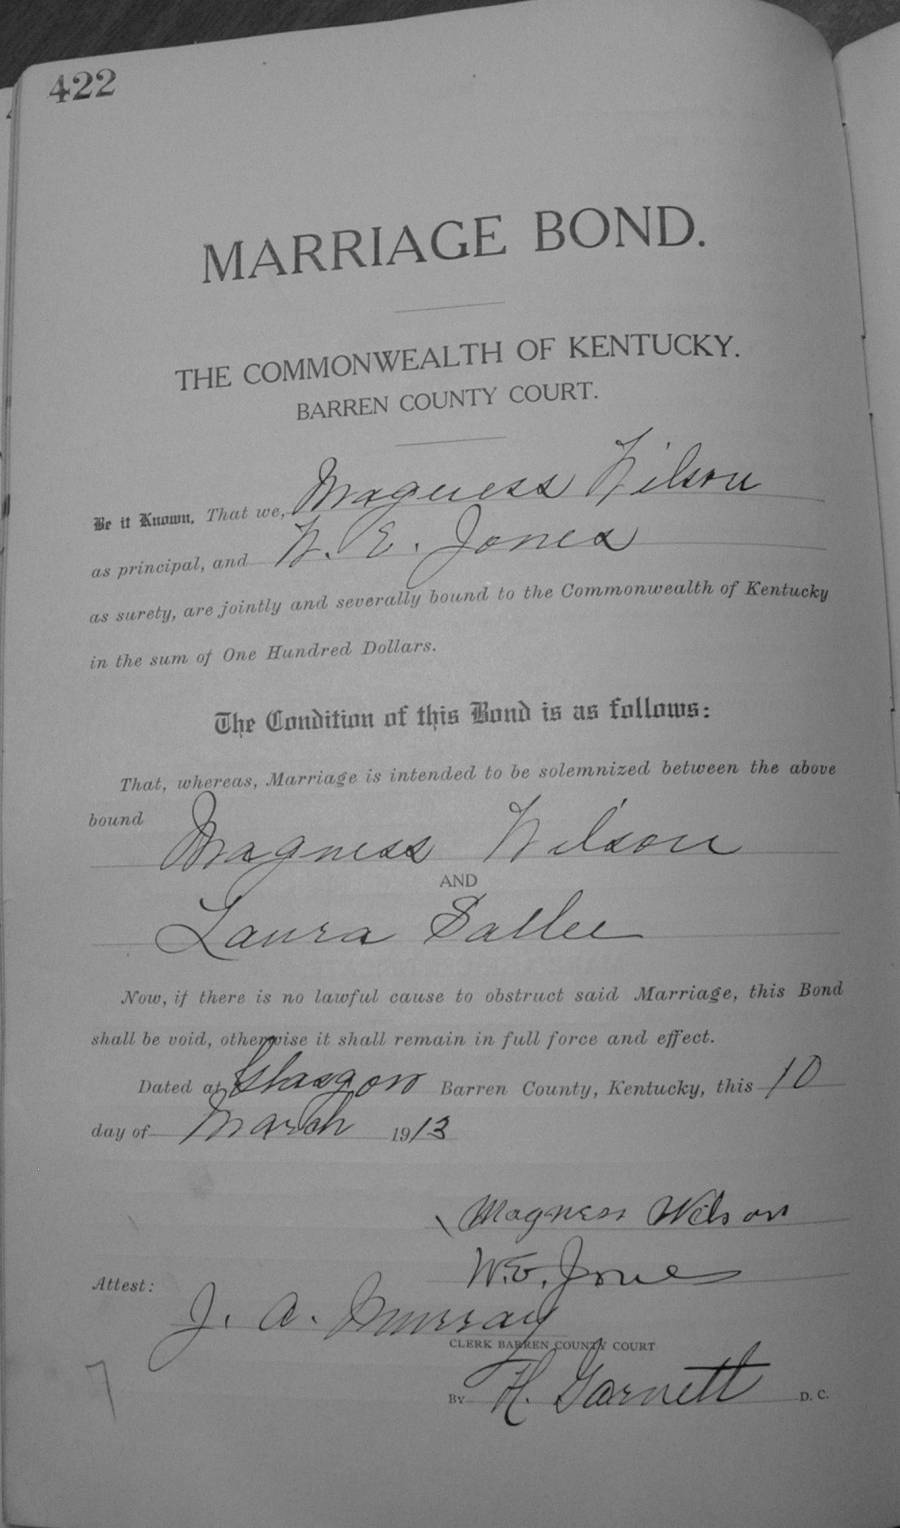 422
MARRIAGE BOND.
THE COMMONWEALTH OF KENTUCKY.
BARREN COUNTY COURT.
Be it Known, That we, Magness Wilson
as principal, and W. E. Jones
as surety, are jointly and severally bound to the Commonwealth of Kentucky
in the sum of One Hundred Dollars.
The Condition of this Bond is as follows:
That, whereas, Marriage is intended to be solemnized between the above
bound Magness Wilson
AND
Laura Sallee
Now, if there is no lawful cause to obstruct said Marriage, this Bond
shall be void, otherwise it shall remain in full force and effect.
Dated at Glasgow Barren County, Kentucky, this 10
day of March 1913
Magness Wilson
W. E. Jones
Attest:
J. A. Murray
CLERK BARREN COUNTY COURT
By H. Garnett D. C.
7